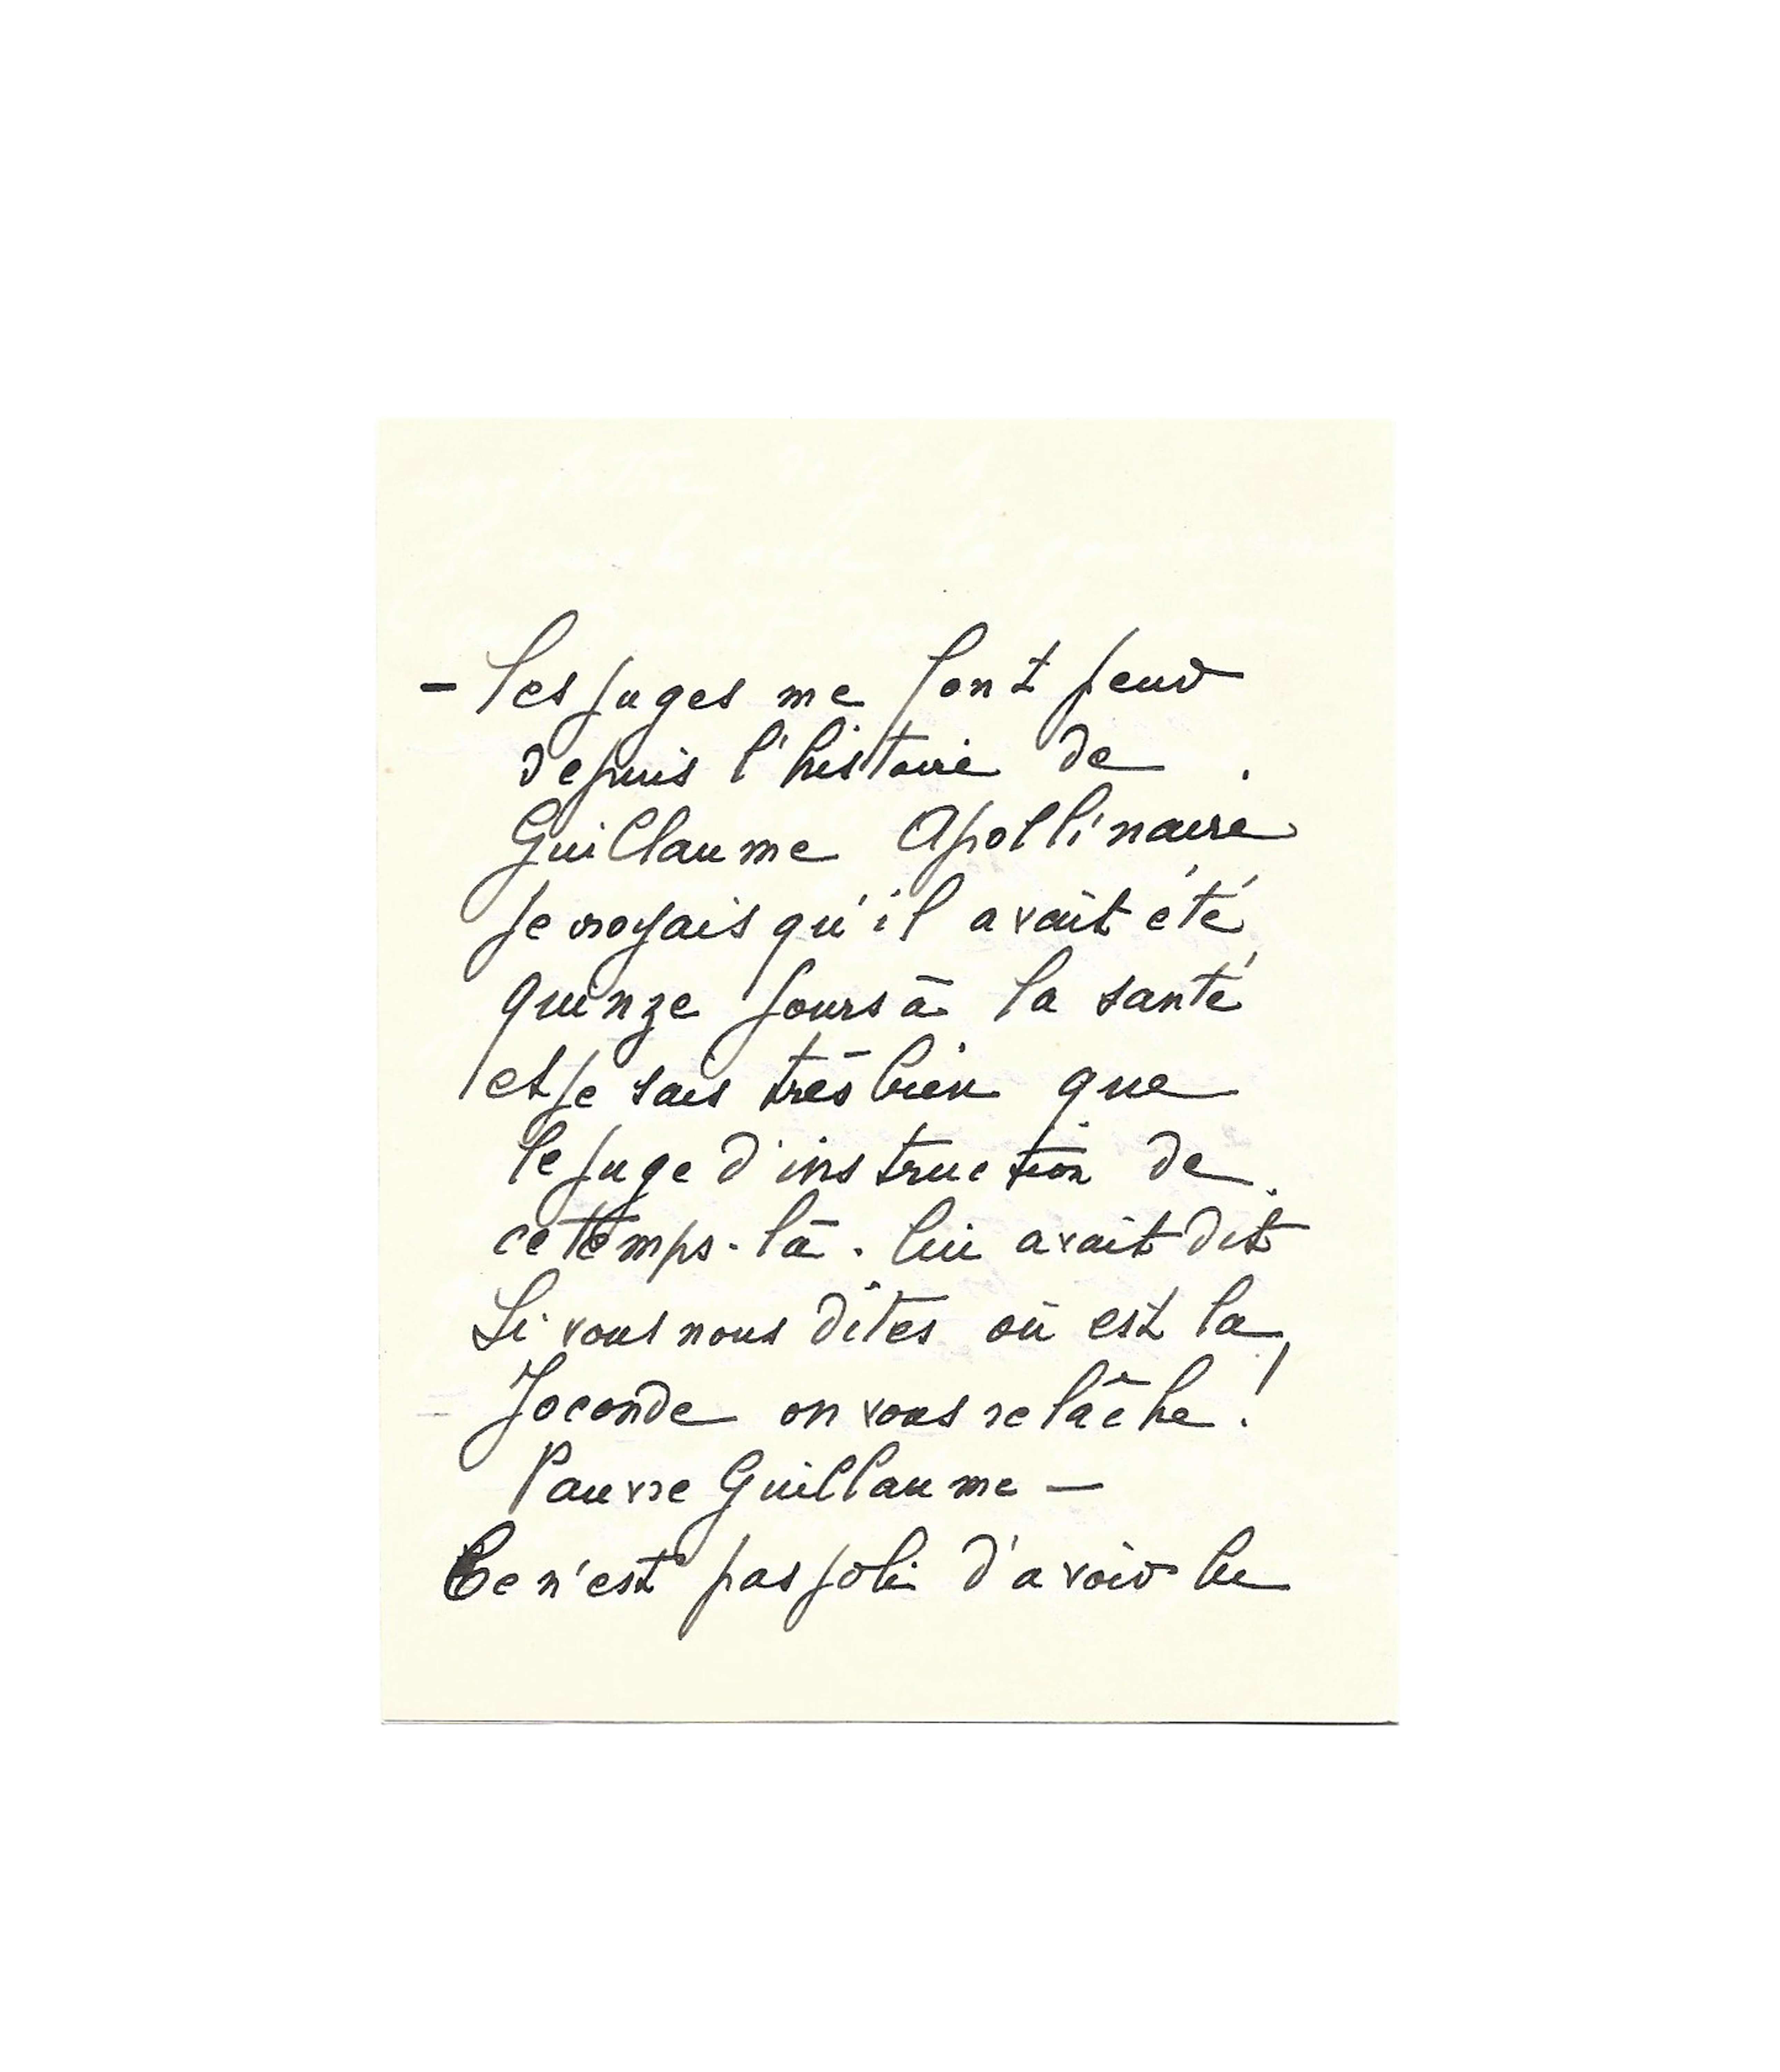 - les juges me font peur
depuis l'histoire de
Guillaume Apollinaire
Je croyais qu'il avait été
quinze jours à la santé
et je sais très bien que
le juge d'instruction de
ce temps-là. lui avait dit
Si vous nous dîtes où est la
Joconde on vous relâche!
Pauvre Guillaume —
Ce n'est pas joli d'avoir lu